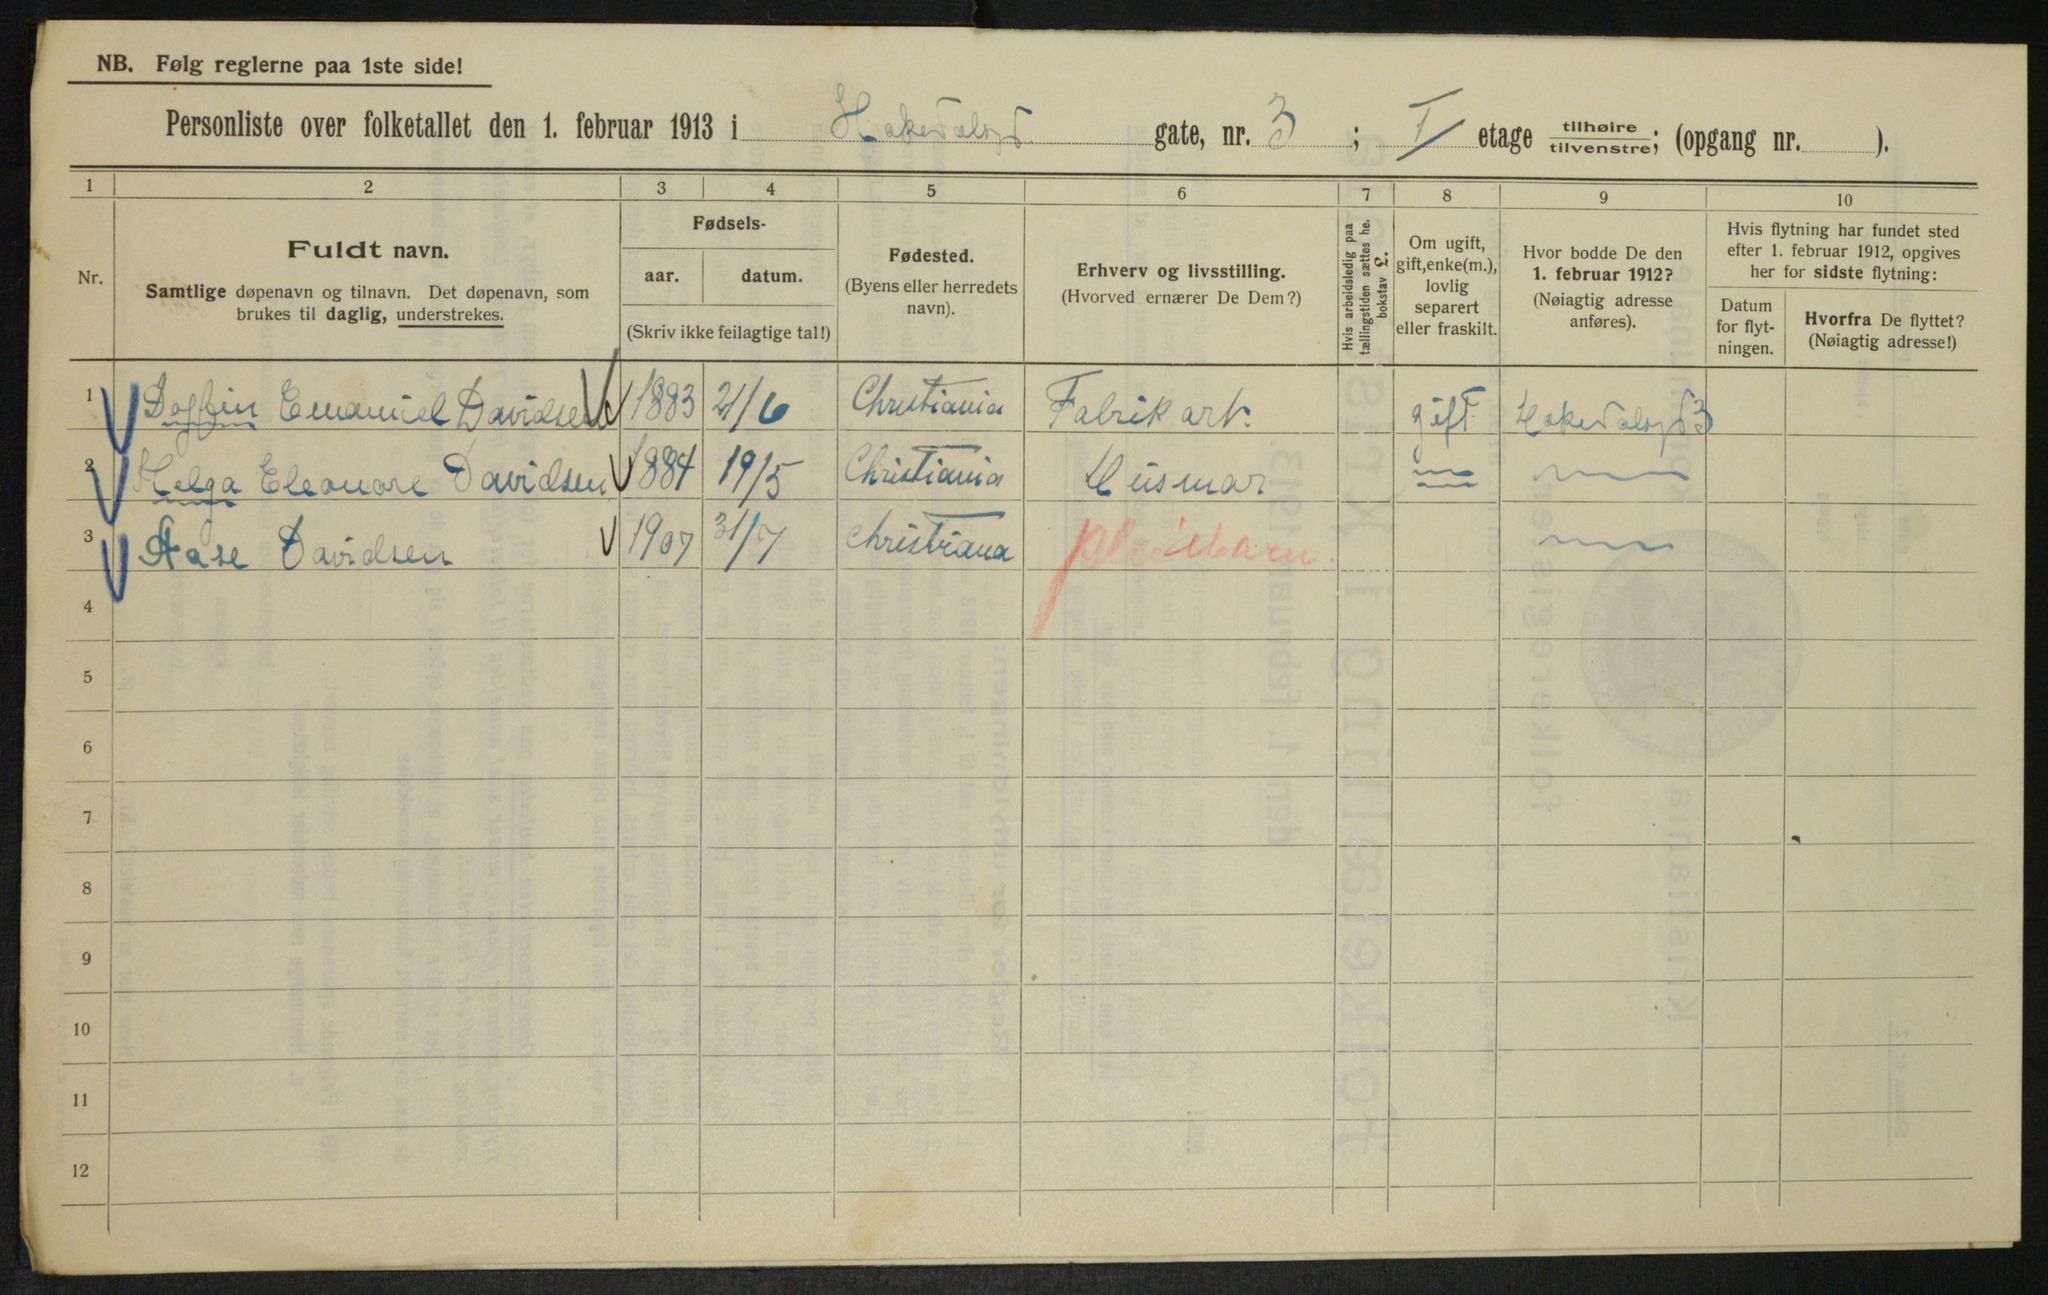 NB. Følg reglerne paa 1ste side!
Personliste over folketallet den 1. februar 1913 i Hakedalsgd gate, nr. 3; I etage tilhøire / tilvenstre; (opgang nr. ).
1 2 3 4 5 6 7 8 9 10
Nr.
Fuldt navn.
Samtlige døpenavn og tilnavn. Det døpenavn, som
brukes til daglig, understrekes.
Fødsels-
aar. datum.
(Skriv ikke feilagtige tal!)
Fødested.
(Byens eller herredets
navn).
Erhverv og livsstilling.
(Hvorved ernærer De Dem?)
Hvis arbeidsledig paa
tællingstiden sættes her
bokstav L.
Om ugift,
gift, enke(m.),
lovlig
separert
eller fraskilt.
Hvor bodde De den
1. februar 1912?
(Nøiagtig adresse
anføres).
Hvis flytning har fundet sted
efter 1. februar 1912, opgives
her for sidste flytning:
Datum
for flyt-
ningen.
Hvorfra De flyttet?
(Nøiagtig adresse!)
1 Doffin Emanuel Davidsen 1883 21/6 Christiania Fabrik arb. gift Hakedalsgd 3
2 Helga Eleonore Davidsen 1884 19/5 Christiania Husmor
3 Aase Davidsen 1907 31/7 Christiana
4
5
6
7
8
9
10
11
12